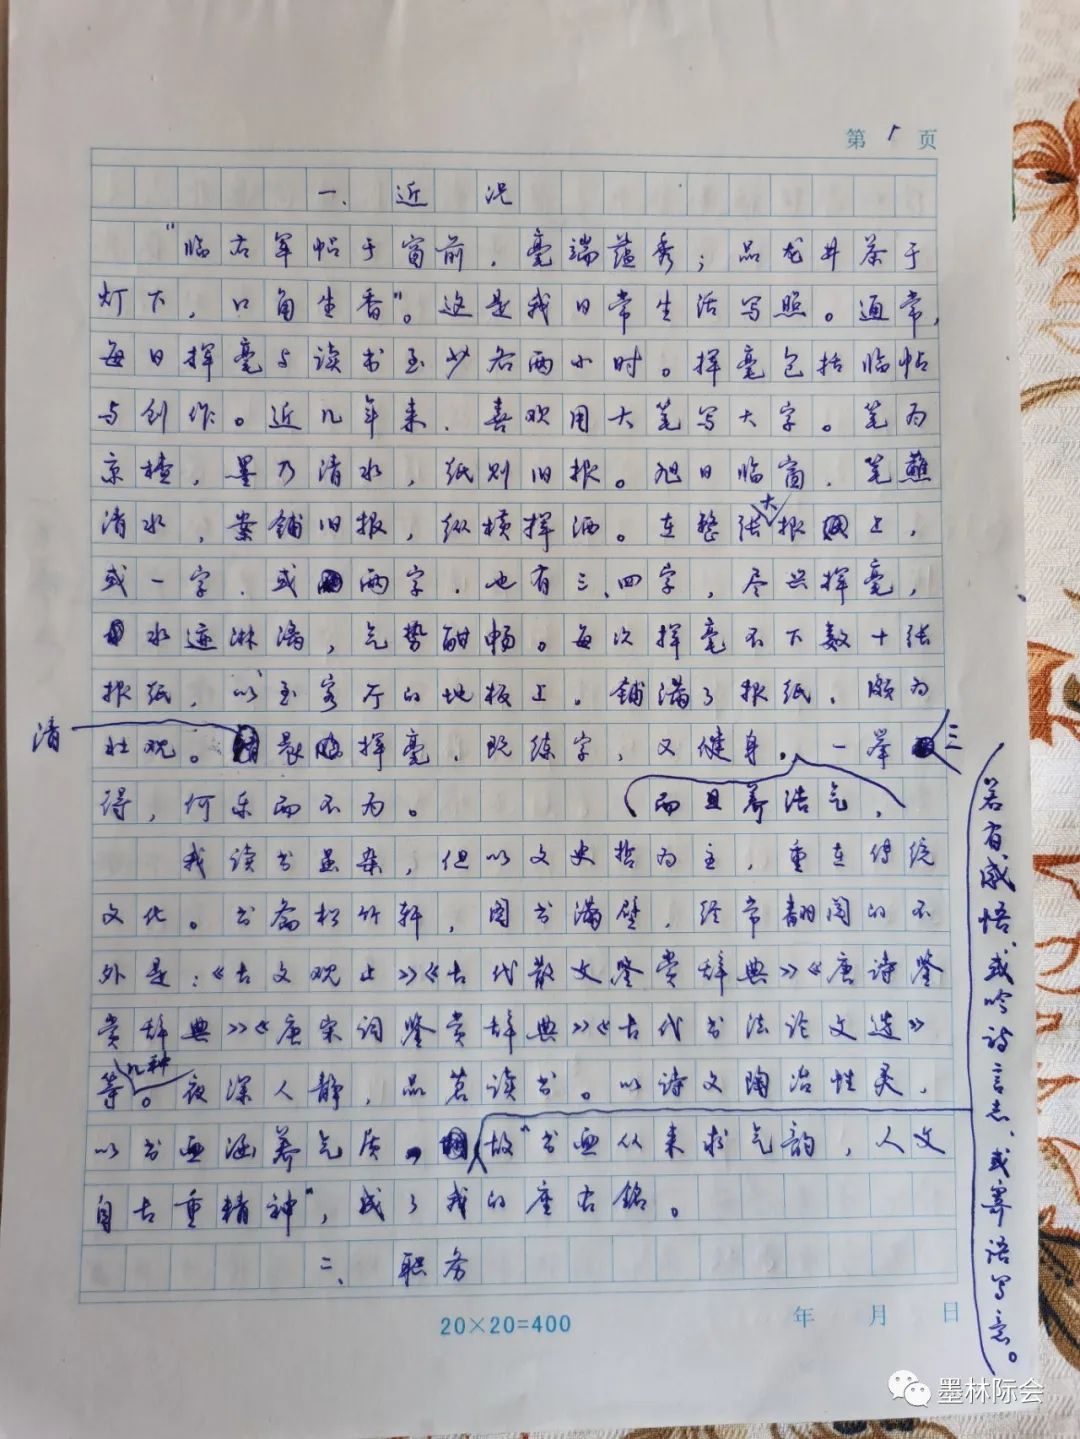 第1页
一、近况
“临右军帖于窗前，毫端蕴秀；品龙井茶于
灯下，口角生香”。这是我日常生活写照。通常，
每日挥毫与读书至少各两小时。挥毫包括临帖
与创作。近几年来，喜欢用大笔写大字。笔为
京楂，墨乃清水，纸则旧报。旭日临窗，笔蘸
清水，案铺旧报，纵横挥洒。在整张大报上，
或一字、或两字，也有三、四字，尽兴挥毫，
水迹淋漓，气势酣畅。每次挥毫不下数十张
报纸，以至客厅的地板上，铺满了报纸，颇为
壮观。清晨挥毫，既练字，又健身，一举三
得，何乐而不为。
而且养浩气，
我读书虽杂，但以文史哲为主，重在传统
文化。书斋松竹轩，图书满壁，经常翻阅的不
外是：《古文观止》《古代散文鉴赏辞典》《唐诗鉴
赏辞典》《唐宋词鉴赏辞典》《古代书法论文选》
等几种。夜深人静，品茗读书。以诗文陶冶性灵，
以书画涵养气质。故“书画从来求气韵，人文
自古重精神”，成了我的座右铭。
若有感悟、或吟诗言志、或寄语写意。
二、职务
20×20=400
年 月 日
墨林际会